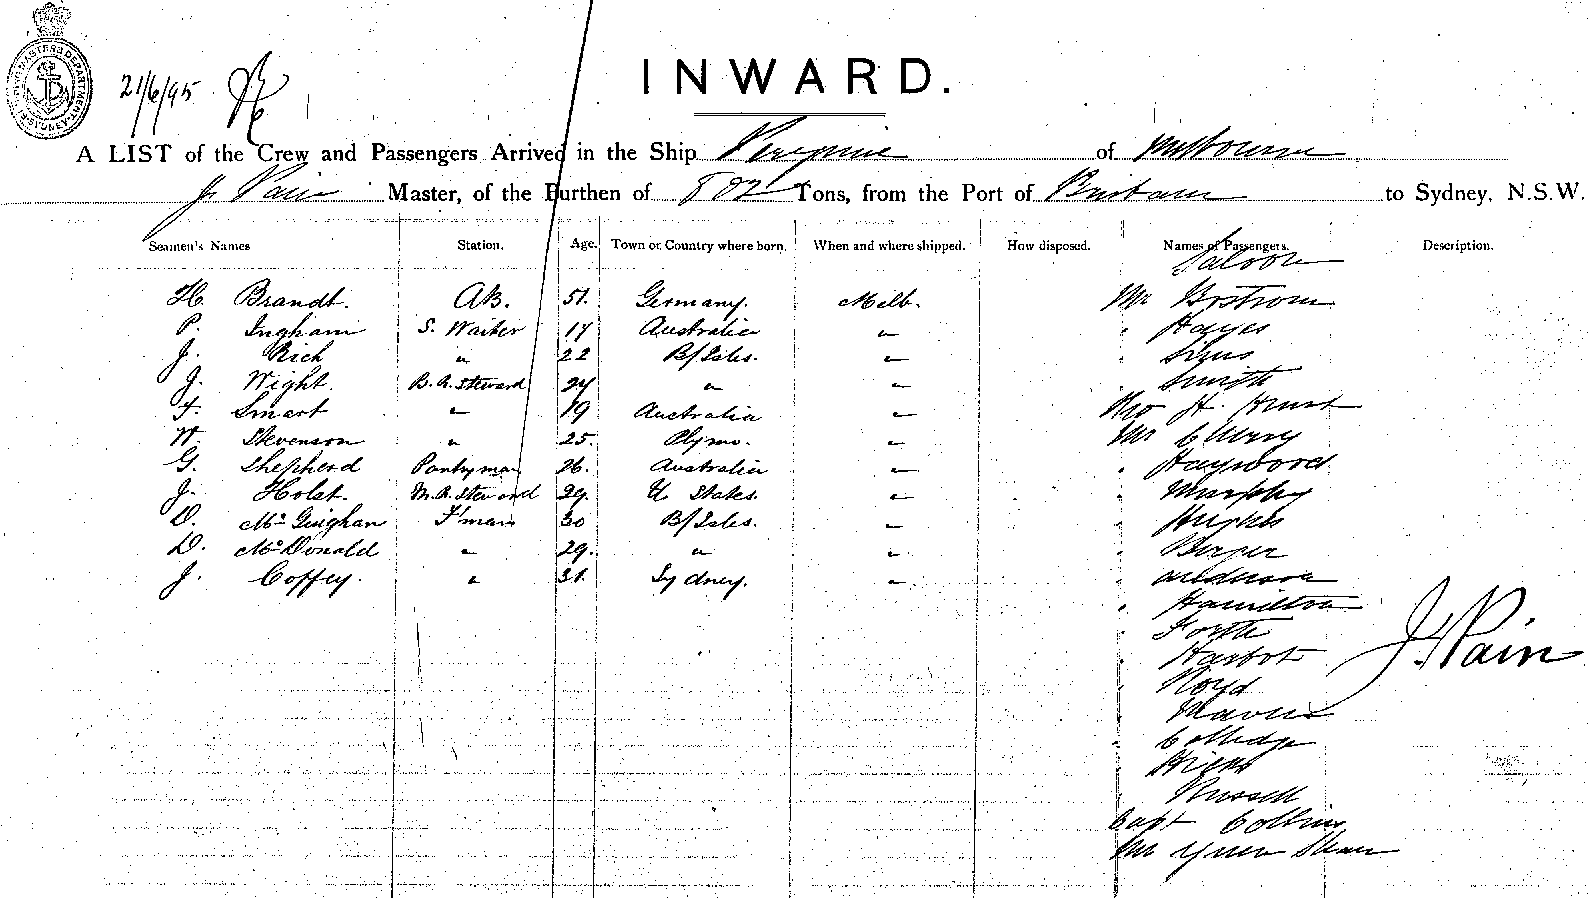 SHIPPING MASTERS DEPARTMENT SYDNEY
21/6/95
INWARD.
A LIST of the Crew and Passengers Arrived in the Ship Peregrine of Melbourne
J. Pain Master, of the Burthen of Tons, from the Port of Brisbane to Sydney, N.S.W.
Seamen's Names Station. Age. Town or Country where born. When and where shipped. How disposed. Names of Passengers. Description.
Saloon
H. Brandt. AB. 51. Germany. Melb. Mr Bostrom
P. Ingham S. Waiter 17 Australia " " Hayes
J. Rich " 22 B/Isles. " " Sims
J. Wight. B.R. Steward 24 " " " Smith
F. Smart " 19 Australia " Mrs H.
W. Stevenson " 25. Plymo. " Mr
G. Shepherd Pantryman 26. Australia " " Haywood
J. Holst. M.R. Steward 29. U States. " " Murphy
D. McGuighan F'man 30 B/Isles. " " Hughes
D. McDonald " 29. " " "
J. Coffey. " 31. Sydney. " " Anderson
" Hamilton
" Forth
" Harbot
" Lloyd
"
" Colledge
"
Russell
Capt Collins
Mr
J. Pain